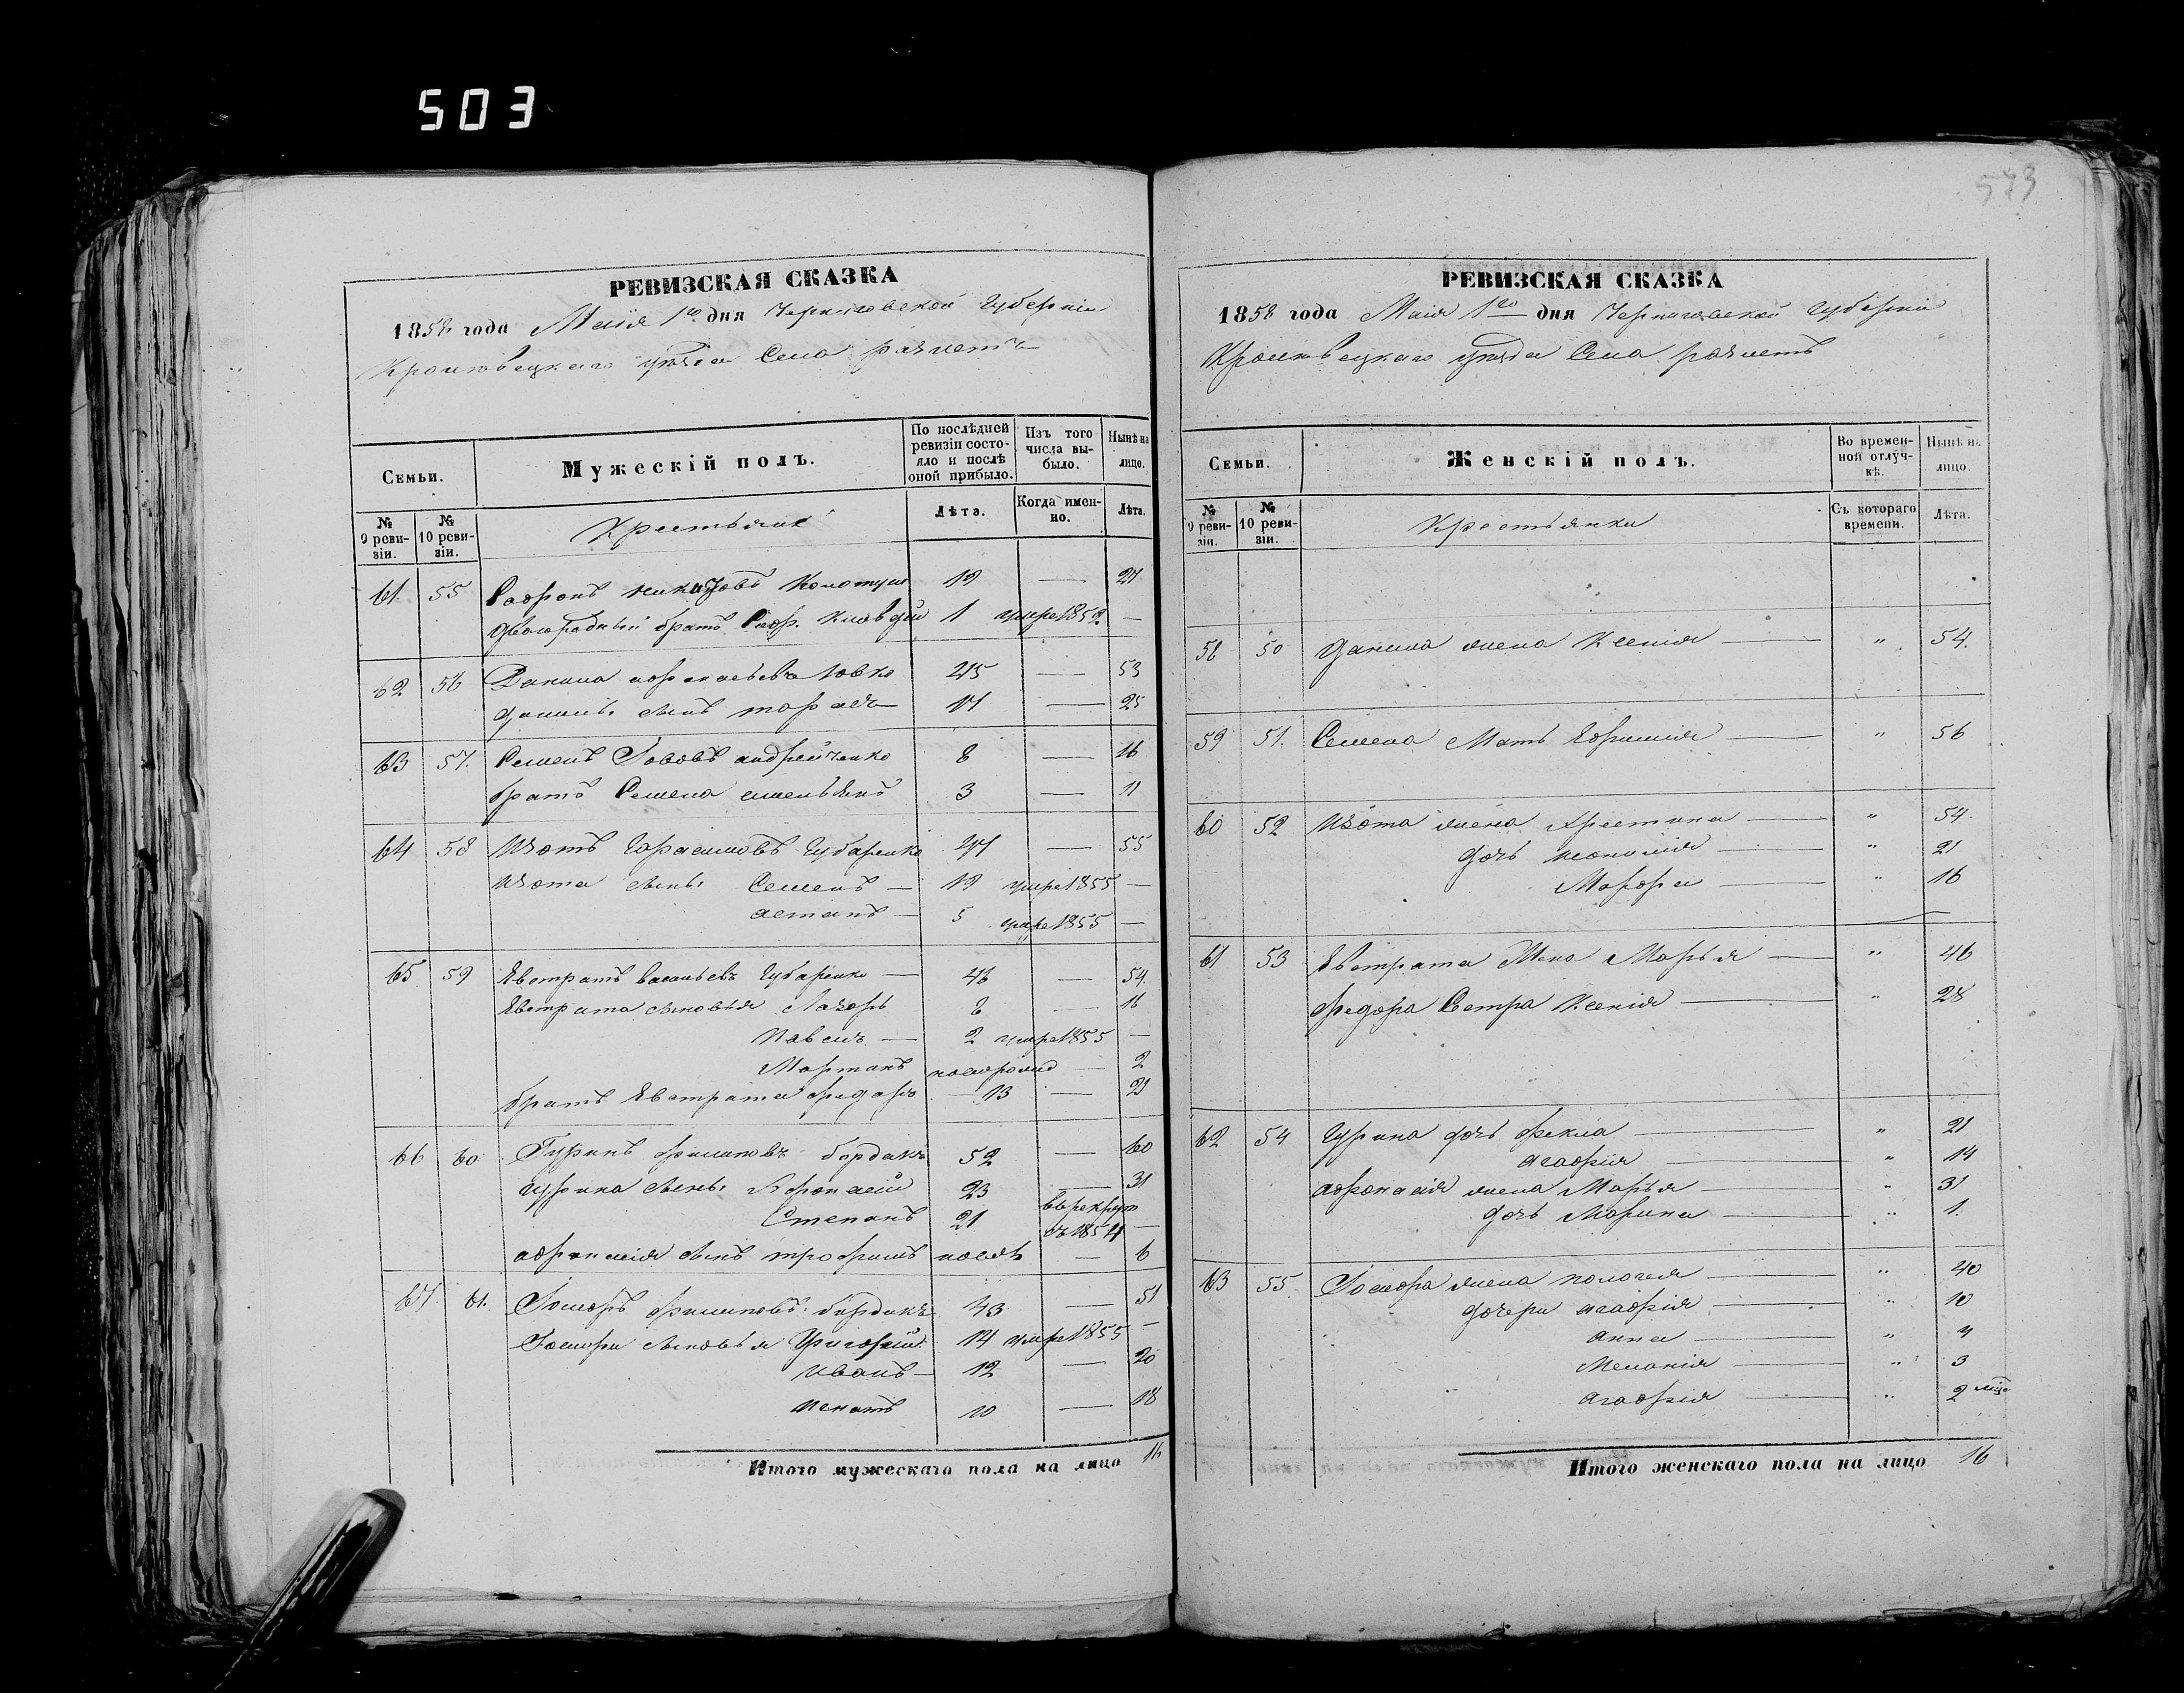 503
РЕВИЗСКАЯ СКАЗКА
1858 года Маія 1го дня Черниговской Губерніи
Кролевецкаго уѣзда Села
Семьи.
Мужескій полъ.
По послѣдней ревизіи состо-
яло и послѣ оной прибыло.
Изъ того числа вы-
было.
Нынѣ на лицо.
№ 9 реви-
зіи.
№ 10 реви-
зіи.
Крестьяне
Лѣта.
Когда имен-
но.
Лѣта.
61 55 Софронъ 19 —
двоюродный братъ Соф. 1 умре 1852 —
62 56 Данила Афанасьевъ Ювко 45 — 53
Данилы сынъ Тарасъ 17 — 25
63 57. Семенъ Іововъ Андрейченко 8 — 16
братъ Семена 3 — 11
64 58 Изотъ Герасимовъ Губаренко 47 — 55
Изота сыны Семенъ — 19 умре 1855 —
— 5 умре 1855 —
65 59 Евстратъ Васильевъ Губаренко — 46 — 54.
Евстрата сыновья Лазорь 8 — 16
Павелъ — 2 умре 1855 —
Мартинъ — 2
братъ Евстрата Федоръ — 13 — 21
66 60 Гуринъ Филиповъ Бордакъ 52 — 60
Гурина сыны Афанасій 23 — 31
Степанъ 21 въ рекруты съ 1854 —
Афанасія сынъ Трофимъ послѣ — 6
67 61. Филиповъ Бордакъ 43 — 51
сыновья Григорій 14 умре 1855 —
Иванъ — 12 — 20
Игнатъ 10 — 18
Итого мужескаго пола на лицо 16
573
РЕВИЗСКАЯ СКАЗКА
1858 года Маія 1го дня Черниговской Губерніи
Кролевецкаго уѣзда Села
Семьи.
Женскій полъ.
Во времен-
ной отлуч-
кѣ.
Нынѣ на лицо.
№ 9 реви-
зіи.
№ 10 реви-
зіи.
Крестьянки
Съ котораго времени.
Лѣта.
58 50 Данила жена Ксенія — " 54.
59 51. Семена Мать Ефимія — " 56
60 52 Изота жена Христина — " 54
дочь — " 21
Марфа — " 16
61 53 Евстрата Жена Марья — " 46
Федора Сестра Ксенія — " 28
62 54 Гурина дочь Фекла — " 21
Агафія — " 14
Афанасія жена Марья — " 31
дочь Марина — " 1.
63 55. жена Пологея — " 40
дочери Агафія — " 10
Анна — "
Меланія — " 3
Агафія — " 2 мѣс
Итого женскаго пола на лицо 16